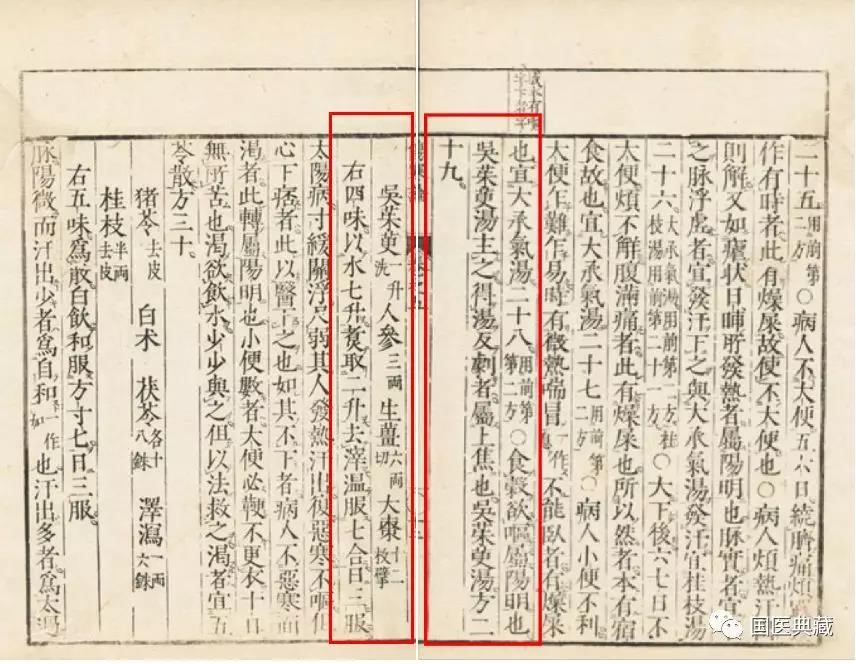 二十五用前第二方○病人不大便五六日繞臍痛煩
作有時者此有燥屎故使不大便也○病人煩熱汗
則解又如瘧狀日晡所發熱者屬陽明也脉實者宜
之脉浮虛者宜發汗下之與大承氣湯發汗宜桂枝湯
二十六大承氣湯用前第二方桂枝湯用前第二十一方○大下後六七日不
大便煩不解腹滿痛者此有燥屎也所以然者本有宿
食故也宜大承氣湯二十七用前第○病人小便不利
大便乍難乍易時有微熱喘冒一作不能臥者有燥屎
也宜大承氣湯二十八用前第第二方○食穀欲嘔屬陽明也
吳茱萸湯主之得湯反劇者屬上焦也吳茱萸湯方二
十九。
吳茱萸一升洗人參三兩生薑六兩切大棗十二枚擘
右四味以水七升煑取二升去滓温服七合日三服
太陽病寸緩關浮尺弱其人發熱汗出復惡寒不嘔但
心下痞者此以醫下之也如其不下者病人不惡寒而
渴者此轉屬陽明也小便數者大便必鞕不更衣十日
無所苦也渴欲飲水少少與之但以法救之渴者宜五
苓散方三十。
猪苓去皮 白术 茯苓各十八銖 澤瀉一兩六銖
桂枝半兩去皮
右五味爲散白飲和服方寸匕日三服。
脉陽微而汗出少者爲自和一作如也汗出多者爲太過
国医典藏